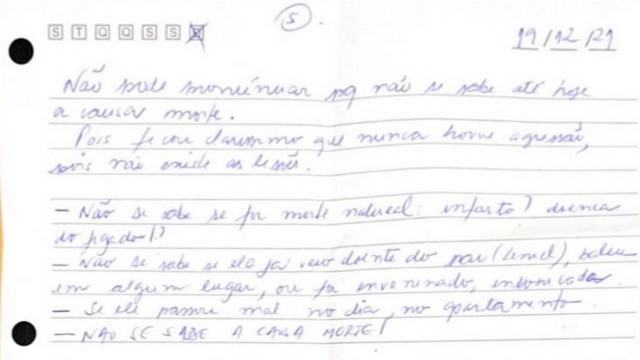 5.
S T Q Q S S D
19/12/21
Não pode pronunciar pq não se sabe até hoje
a causa morte.
Pois ficou claríssimo que nunca houve agressão,
pois não existe as lesões.
— Não se sabe se foi morte natural: infarto? doença
do fígado!?
— Não se sabe se ele já veio doente do pai (Leniel), bateu
em algum lugar, ou foi envenenado, intoxicado.
— Se ele passou mal no dia, no apartamento.
— NÃO SE SABE A CAUSA MORTE!